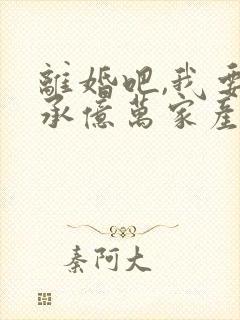 離婚吧,我要
承億萬家產
秦阿大